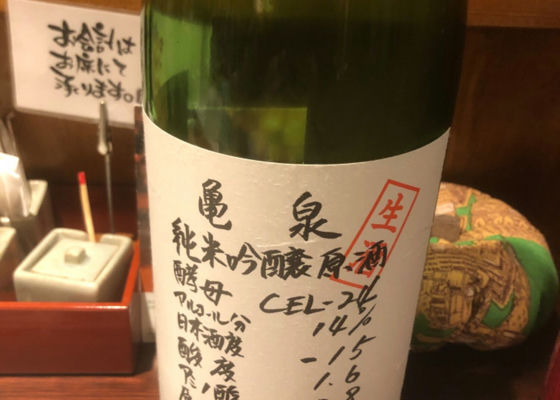 お会計は
お席にて
承ります。
亀泉
生酒
純米吟醸原酒
酵母 CEL-24
アルコール分 14%
日本酒度 -15
酸度 1.6
アミノ酸